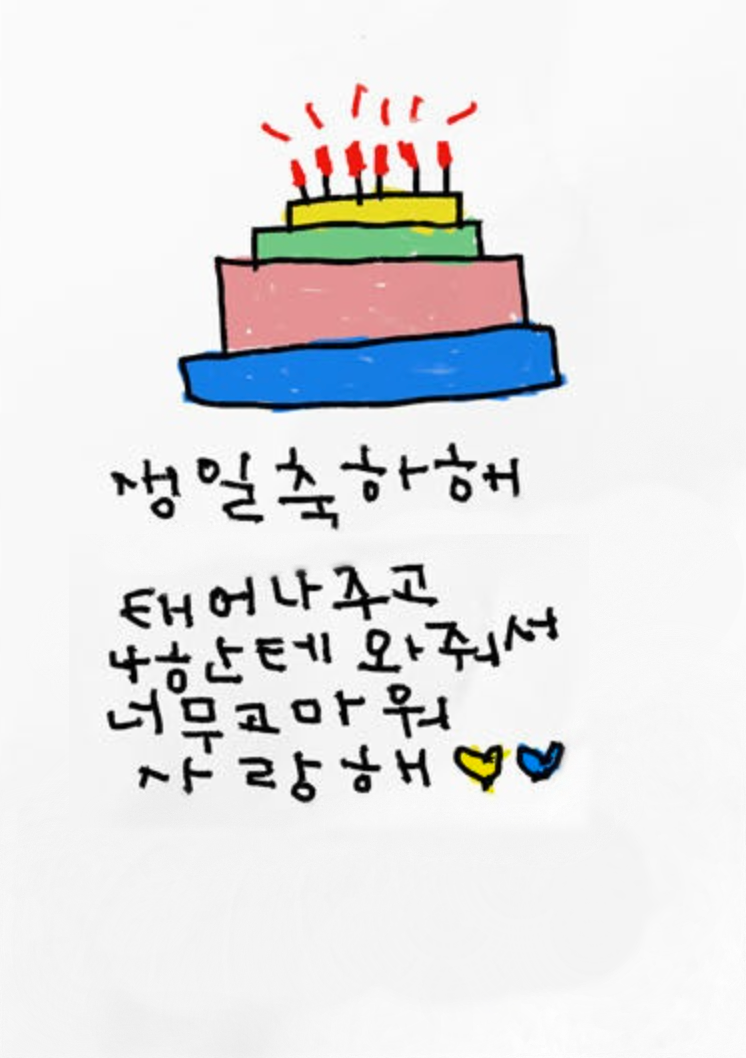 생일축하해
태어나주고
나한테 와줘서
너무고마워
사랑해 💛💙